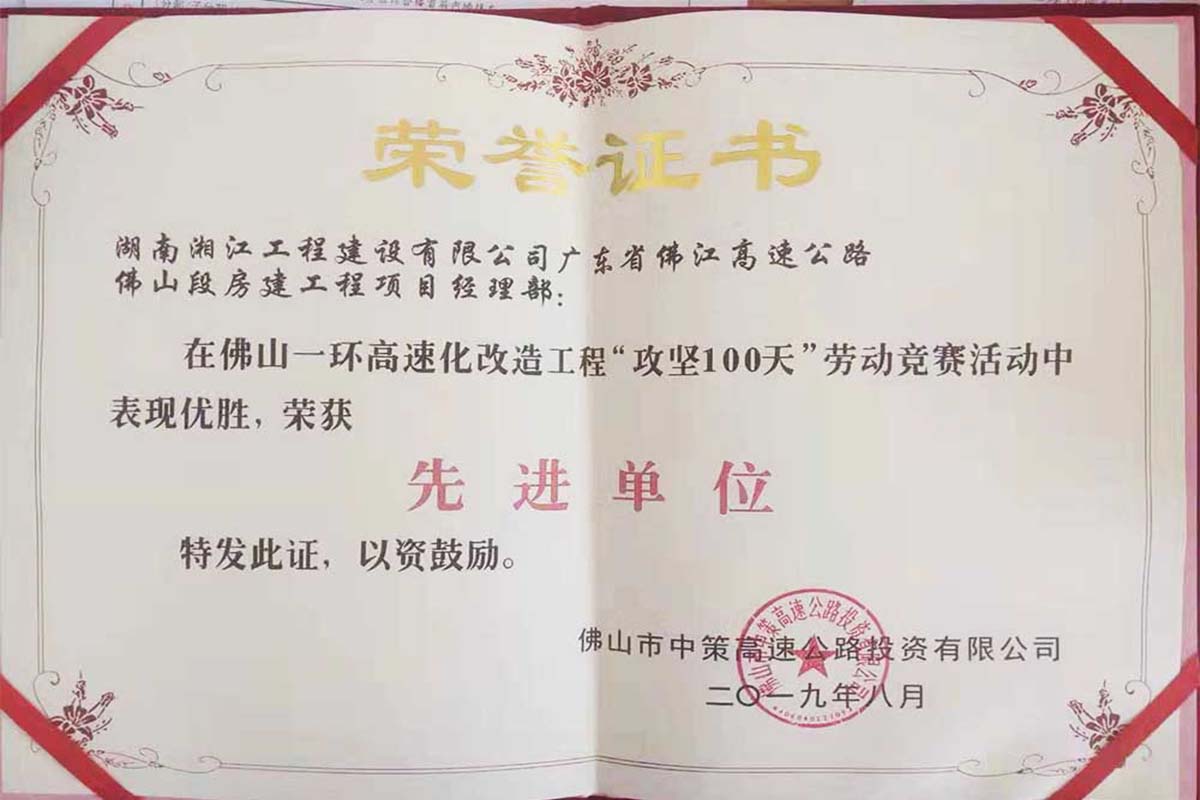 荣誉证书
湖南湘江工程建设有限公司广东省佛江高速公路
佛山段房建工程项目经理部：
在佛山一环高速化改造工程“攻坚100天”劳动竞赛活动中
表现优胜，荣获
先进单位
特发此证，以资鼓励。
佛山市中策高速公路投资有限公司
二〇一九年八月
佛山市中策高速公路投资有限公司